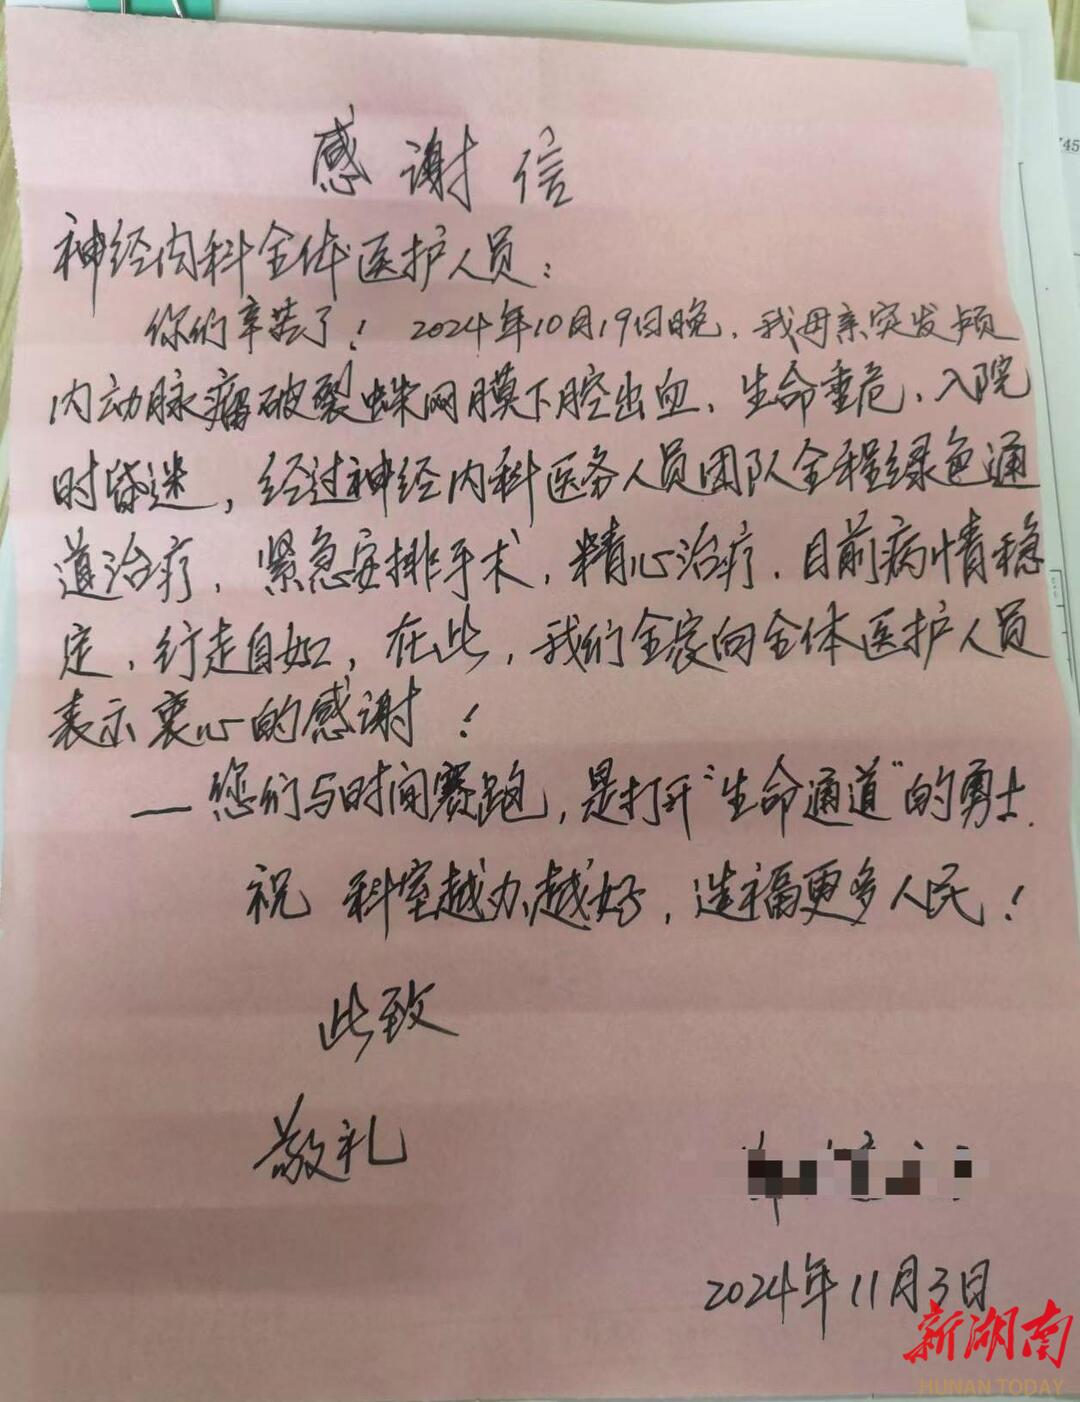 感谢信
神经内科全体医护人员：
你们辛苦了！2024年10月19日晚，我母亲突发颅
内动脉瘤破裂蛛网膜下腔出血，生命重危，入院
时昏迷，经过神经内科医务人员团队全程绿色通
道治疗，紧急安排手术，精心治疗，目前病情稳
定，行走自如，在此，我们全家向全体医护人员
表示衷心的感谢！
—您们与时间赛跑，是打开“生命通道”的勇士.
祝 科室越办越好，造福更多人民！
此致
敬礼
2024年11月3日
新湖南
HUNAN TODAY